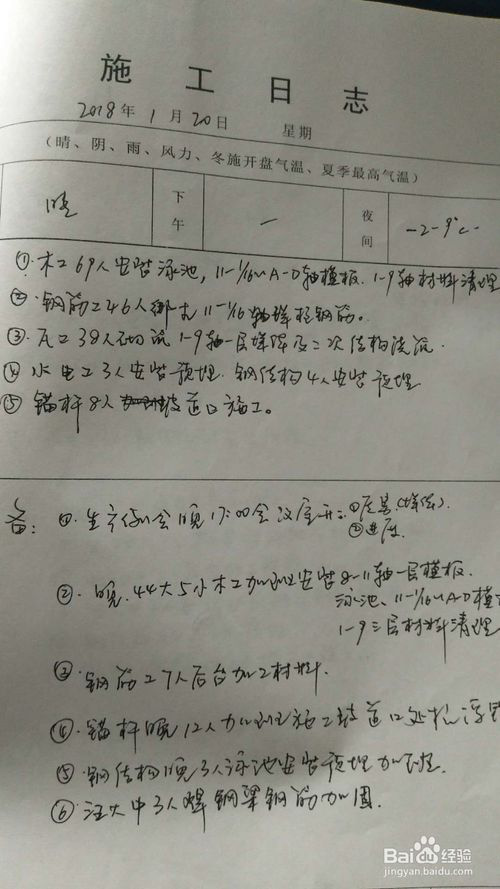 施工日志
2018年1月20日 星期
(晴、阴、雨、风力、冬施开盘气温、夏季最高气温)
晴 下午 — 夜间 -2-9℃
①木工69人安装泳池,11-1/16~A-D轴模板.1-9轴材料清理
②钢筋工46人绑扎11-1/16轴墙柱钢筋。
③瓦工38人砌筑1-9轴一层墙体及二次结构浇筑
④水电工3人安装预埋.钢结构4人安装预埋
⑤锚杆8人坡道口施工。
备:①.生产例会晚17:00会议室开:①质量(墙体).
②进度.
②.晚.44大5小木工加班安装8-11轴一层模板.
泳池、11-1/16~A-D模
1-9三层材料清理
③钢筋工7人后台加工材料.
④.锚杆晚12人加班施工坡道口处
⑤钢结构晚3人泳池安装预埋加班.
⑥汪大中3人焊钢梁钢筋加固.
Baidu经验
jingyan.baidu.com